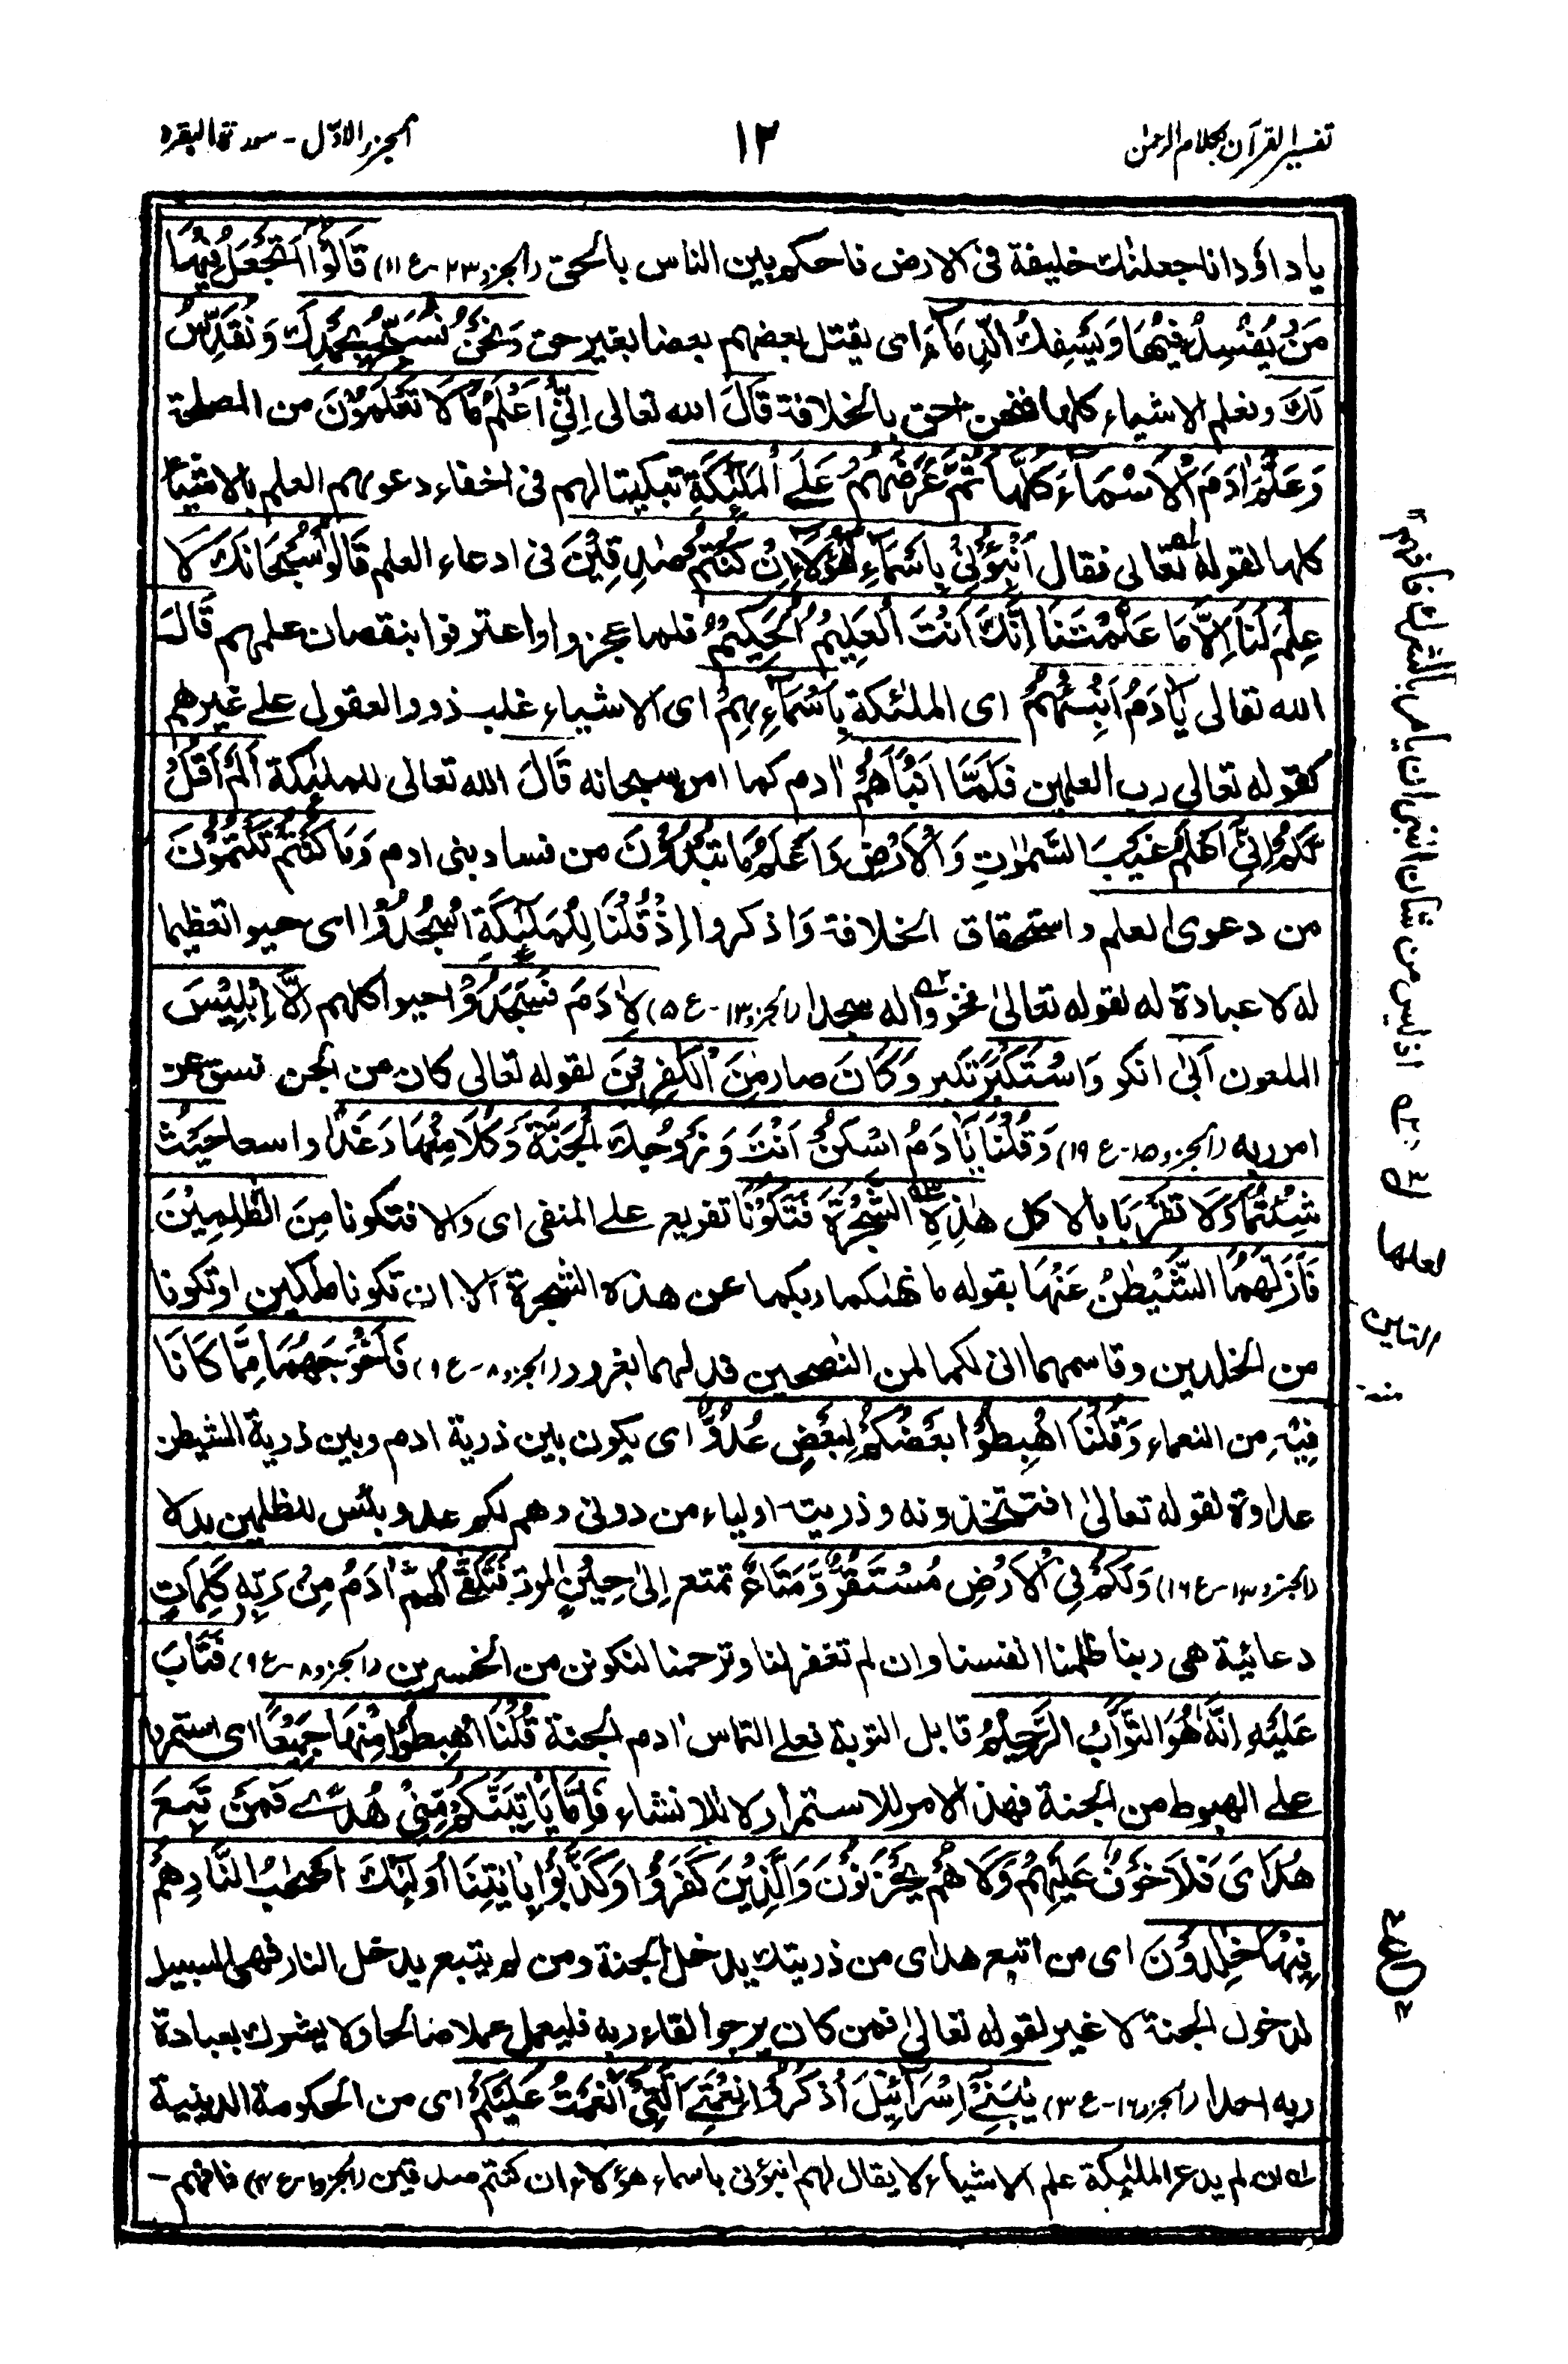 تفسير القرآن بكلام الرحمن
١٢
الجزء الاوّل - سورة البقره
يا داؤد انا جعلنٰك خليفة فى الارض فاحكم بين الناس بالحق (الجزو ٢٣-ع ١١) قَالُوْٓا اَتَجْعَلُ فِيْهَا
مَنْ يُّفْسِدُ فِيْهَا وَيَسْفِكُ الدِّمَآءَ اى يقتل بعضهم بعضا بغير حق وَنَحْنُ نُسَبِّحُ بِحَمْدِكَ وَنُقَدِّسُ
لَكَ ونعلم الاشياء كلها فنحن احق بالخلافة قَالَ الله تعالى اِنِّىْٓ اَعْلَمُ مَا لَا تَعْلَمُوْنَ من المصلحة
وَعَلَّمَ اٰدَمَ الْاَسْمَآءَ كُلَّهَا ثُمَّ عَرَضَهُمْ عَلَى الْمَلٰٓئِكَةِ تبكيتا لهم فى اخفاء دعوٰهم العلم بالاشياء
كلها لقوله تعالى فقال اَنْۢبِـُٔوْنِىْ بِاَسْمَآءِ هٰٓؤُلَآءِ اِنْ كُنْتُمْ صٰدِقِيْنَ فى ادعاء العلم قَالُوْا سُبْحَانَكَ لَا
عِلْمَ لَنَآ اِلَّا مَا عَلَّمْتَنَا اِنَّكَ اَنْتَ الْعَلِيْمُ الْحَكِيْمُ فلما عجزوا واعترفوا بنقصان علمهم قَالَ
الله تعالى يٰٓاٰدَمُ اَنْۢبِئْهُمْ اى الملٰئكة بِاَسْمَآءِهِمْ اى الاشياء غلب ذوو العقول على غيرهم
كقوله تعالى رب العلمين فَلَمَّآ اَنْۢبَاَهُمْ اٰدم كما امر سبحانه قَالَ الله تعالى للملٰئكة اَلَمْ اَقُلْ
لَّكُمْ اِنِّىْٓ اَعْلَمُ غَيْبَ السَّمٰوٰتِ وَالْاَرْضِ وَاَعْلَمُ مَا تُبْدُوْنَ من فساد بنى ادم وَمَا كُنْتُمْ تَكْتُمُوْنَ
من دعوى العلم واستحقاق الخلافة وَ اذكروا اِذْ قُلْنَا لِلْمَلٰٓئِكَةِ اسْجُدُوْا اى حيوا تعظيما
له لا عبادة له لقوله تعالىٰ فخروا له سجدا (الجزو ١٣-ع ٥) لِاٰدَمَ فَسَجَدُوْٓا حيوا كلهم اِلَّآ اِبْلِيْسَ
الملعون اَبٰى انكر وَاسْتَكْبَرَ تكبر وَكَانَ صار مِنَ الْكٰفِرِيْنَ لقوله تعالى كان من الجن ففسق عن
امر ربه (الجزو ١٥-ع ١٩) وَقُلْنَا يٰٓاٰدَمُ اسْكُنْ اَنْتَ وَزَوْجُكَ الْجَنَّةَ وَكُلَا مِنْهَا رَغَدًا واسعا حَيْثُ
شِئْتُمَا وَلَا تَقْرَبَا بالاكل هٰذِهِ الشَّجَرَةَ فَتَكُوْنَا تفريع على المنفى اى والا فتكونا مِنَ الظّٰلِمِيْنَ
فَاَزَلَّهُمَا الشَّيْطٰنُ عَنْهَا بقوله ما نهٰكما ربكما عن هذه الشجرة الا ان تكونا ملكين او تكونا
من الخلدين وقاسمهما انى لكما لمن النٰصحين فدلهما بغرور (الجزو ٨-ع ٩) فَاَخْرَجَهُمَا مِمَّا كَانَا
فِيْهِ من النعماء وَقُلْنَا اهْبِطُوْا بَعْضُكُمْ لِبَعْضٍ عَدُوٌّ اى يكون بين ذرية ادم وبين ذرية الشيطن
عداوة لقوله تعالىٰ افتتخذونه وذريته اولياء من دونى وهم لكم عدو بئس للظلمين بدلا
(الجزو ١٣-ع ١٦) وَلَكُمْ فِى الْاَرْضِ مُسْتَقَرٌّ وَّمَتَاعٌ تمتع اِلٰى حِيْنٍ الموت فَتَلَقّٰٓى اٰدَمُ مِنْ رَّبِّهٖ كَلِمَاتٍ
دعائية هى ربنا ظلمنا انفسنا وان لم تغفر لنا وترحمنا لنكونن من الخسرين (الجزو ٨-ع ٩) فَتَابَ
عَلَيْهِ اِنَّهٗ هُوَ التَّوَّابُ الرَّحِيْمُ قابل التوبة فعلى التماس اٰدم الجنة قُلْنَا اهْبِطُوْا مِنْهَا جَمِيْعًا اى استمروا
على الهبوط من الجنة فهذا الامر للاستمرار لا للانشاء فَاِمَّا يَاْتِيَنَّكُمْ مِّنِّىْ هُدًى فَمَنْ تَبِعَ
هُدَاىَ فَلَا خَوْفٌ عَلَيْهِمْ وَلَا هُمْ يَحْزَنُوْنَ وَالَّذِيْنَ كَفَرُوْا وَكَذَّبُوْا بِاٰيٰتِنَآ اُولٰٓئِكَ اَصْحٰبُ النَّارِ هُمْ
فِيْهَا خٰلِدُوْنَ اى من اتبع هداى من ذريتك يدخل الجنة ومن لم يتبع يدخل النار فهى السبيل
لدخول الجنة لا غير لقوله تعالىٰ فمن كان يرجوا لقاء ربه فليعمل عملا صالحا ولا يشرك بعبادة
ربه احدا (الجزو ١٦-ع ٣) يٰبَنِىْٓ اِسْرَآئِيْلَ اذْكُرُوْا نِعْمَتِىَ الَّتِىْٓ اَنْعَمْتُ عَلَيْكُمْ اى من الحكومة الدينية
ان لم يدع الملئكة علم الاشياء لا يقال لهم انبؤنى باسماء هؤلاء ان كنتم صدقين (الجزو ١-ع ٤) فافهم -
اذ ليس من شان النبى ان يامر بالشرك فافهم ١٢
لعلها
التاين
منه